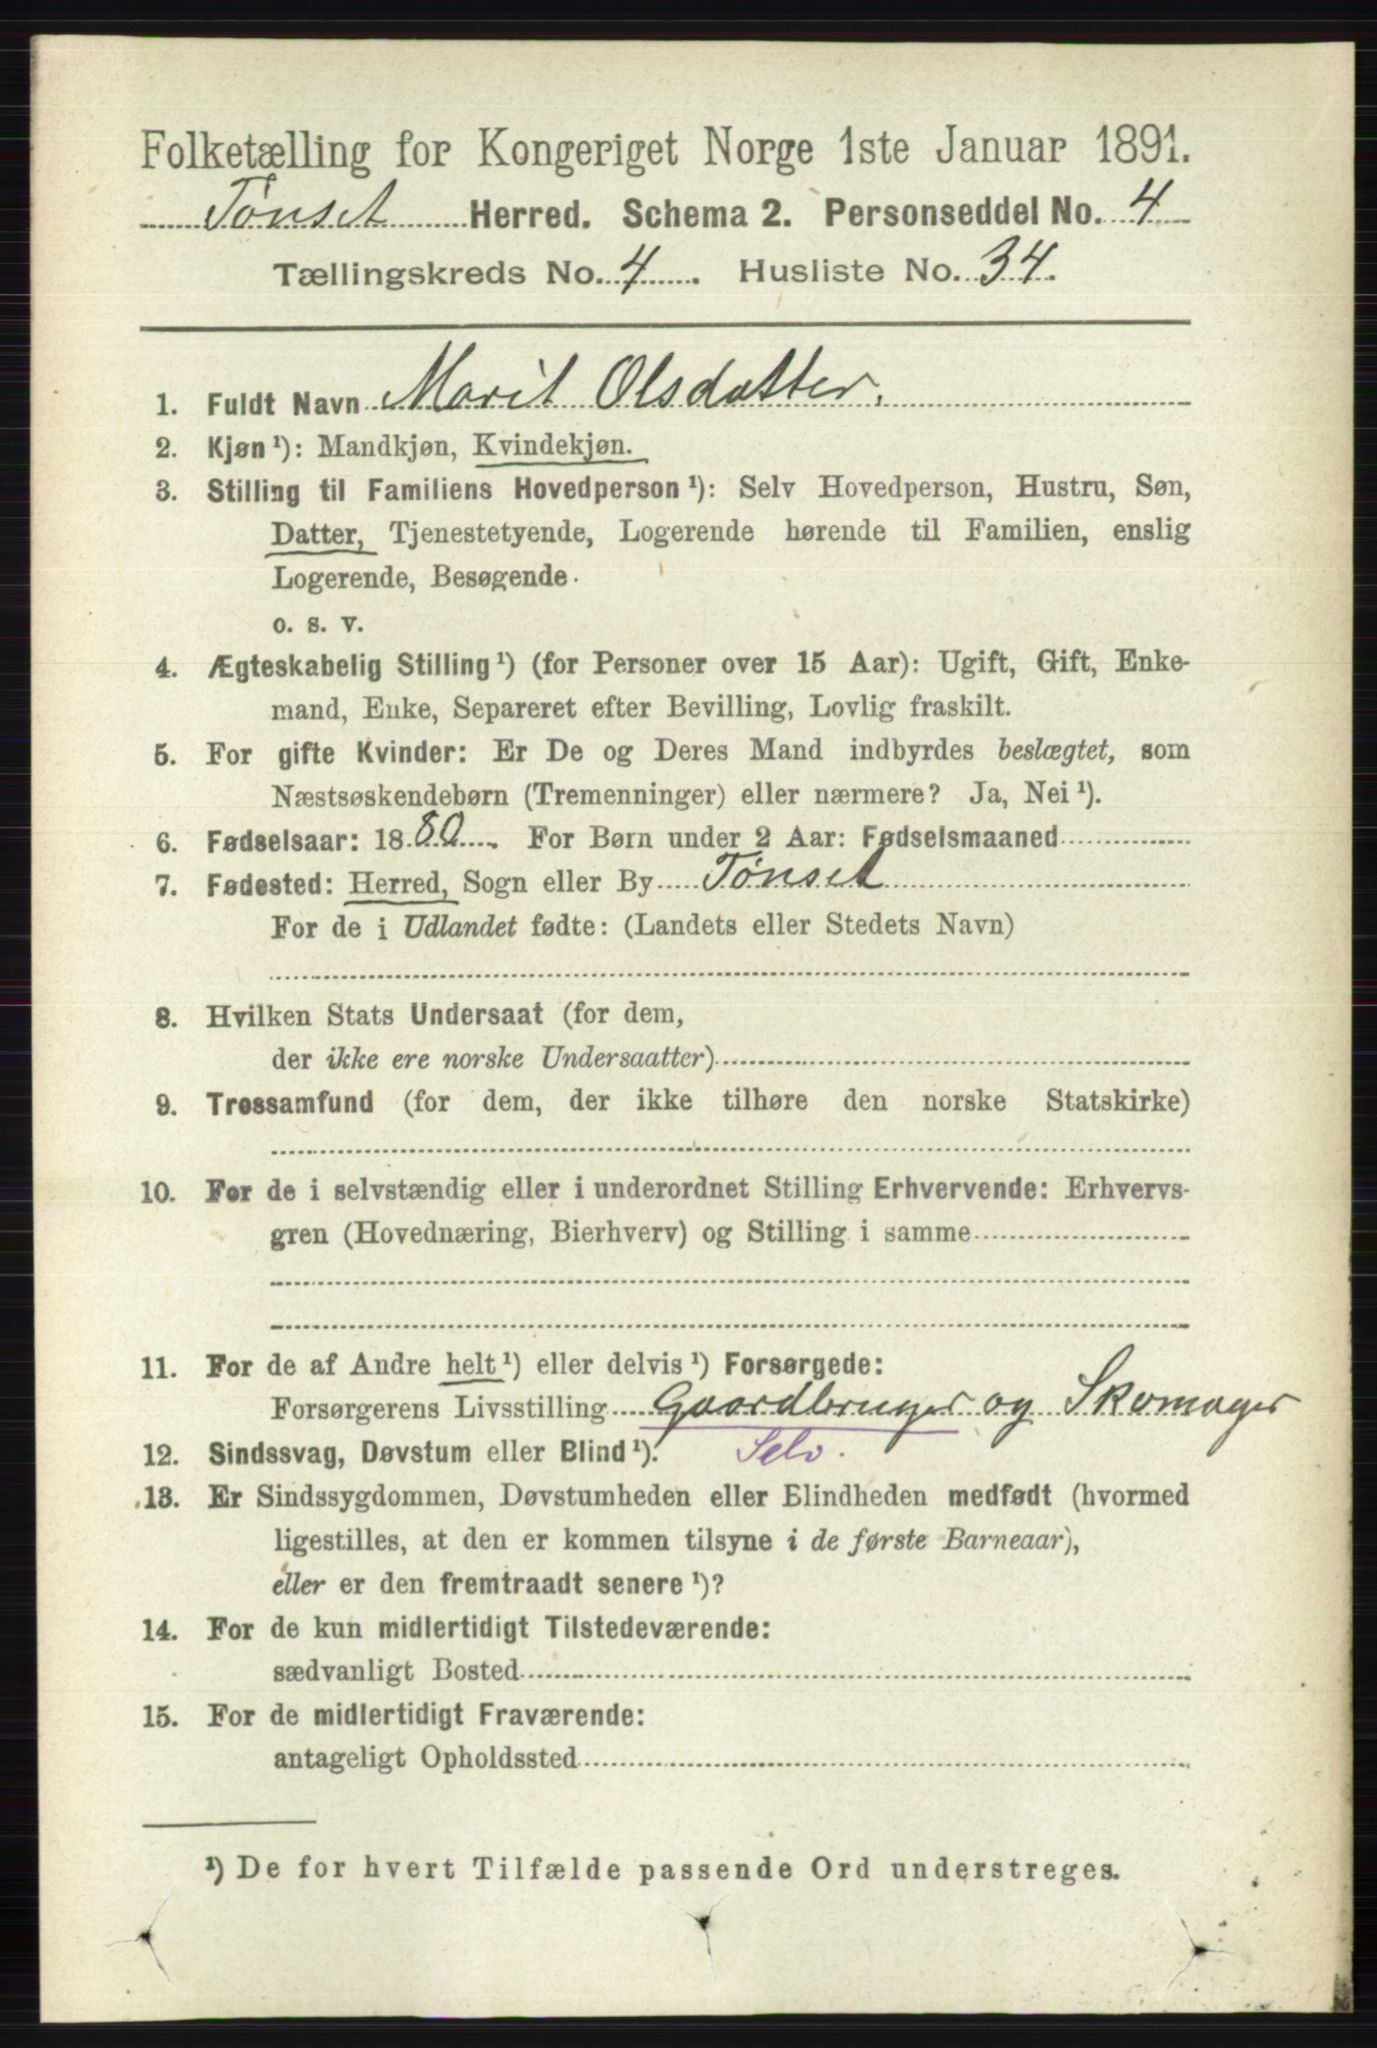 Folketælling for Kongeriget Norge 1ste Januar 1891.
Tønset Herred. Schema 2. Personseddel No. 4
Tællingskreds No. 4. Husliste No. 34.
1. Fuldt Navn Marit Olsdatter.
2. Kjøn¹): Mandkjøn, Kvindekjøn.
3. Stilling til Familiens Hovedperson¹): Selv Hovedperson, Hustru, Søn,
Datter, Tjenestetyende, Logerende hørende til Familien, enslig
Logerende, Besøgende.
o. s. v.
4. Ægteskabelig Stilling¹) (for Personer over 15 Aar): Ugift, Gift, Enke-
mand, Enke, Separeret efter Bevilling, Lovlig fraskilt.
5. For gifte Kvinder: Er De og Deres Mand indbyrdes beslægtet, som
Næstsøskendebørn (Tremenninger) eller nærmere? Ja, Nei¹).
6. Fødselsaar: 1880. For Børn under 2 Aar: Fødselsmaaned
7. Fødested: Herred, Sogn eller By Tønset
For de i Udlandet fødte: (Landets eller Stedets Navn)
8. Hvilken Stats Undersaat (for dem,
der ikke ere norske Undersaatter)
9. Trossamfund (for dem, der ikke tilhøre den norske Statskirke)
10. For de i selvstændig eller i underordnet Stilling Erhvervende: Erhvervs-
gren (Hovednæring, Bierhverv) og Stilling i samme
11. For de af Andre helt¹) eller delvis¹) Forsørgede:
Forsørgerens Livsstilling Gaardbruger og Skomager
12. Sindssvag, Døvstum eller Blind¹). Selv.
13. Er Sindssygdommen, Døvstumheden eller Blindheden medfødt (hvormed
ligestilles, at den er kommen tilsyne i de første Barneaar),
eller er den fremtraadt senere¹)?
14. For de kun midlertidigt Tilstedeværende:
sædvanligt Bosted
15. For de midlertidigt Fraværende:
antageligt Opholdssted
¹) De for hvert Tilfælde passende Ord understreges.